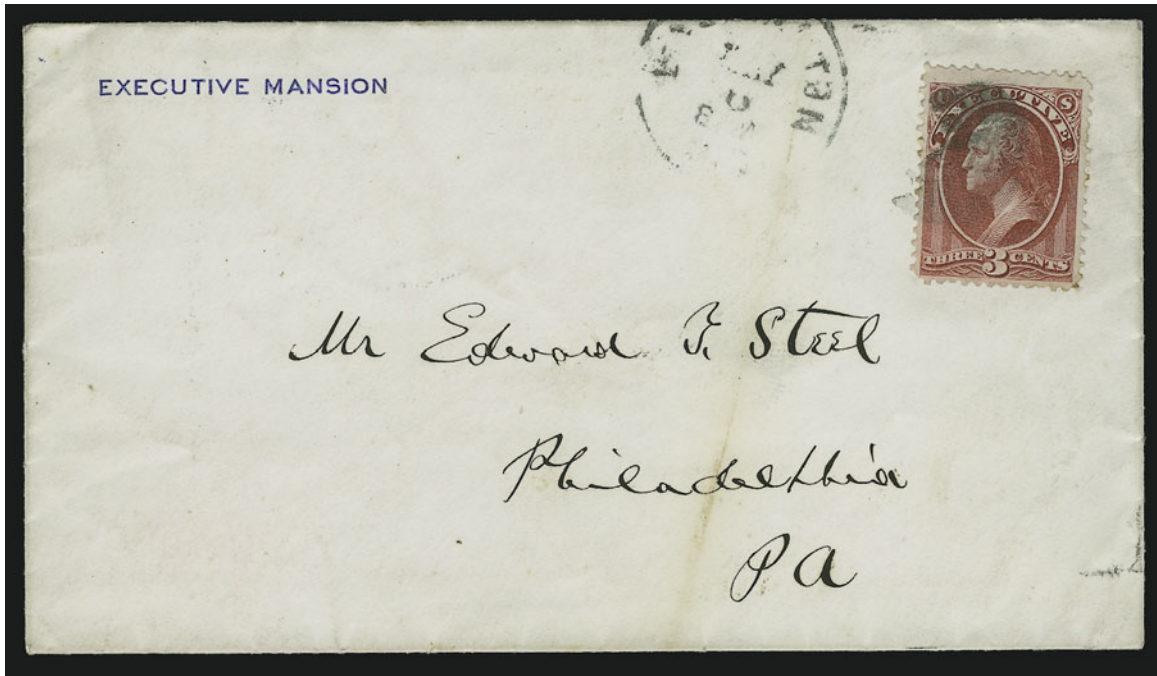 EXECUTIVE MANSION
U S
EXECUTIVE
THREE 3 CENTS
Mr Edward T. Steel
Philadelphia
Pa